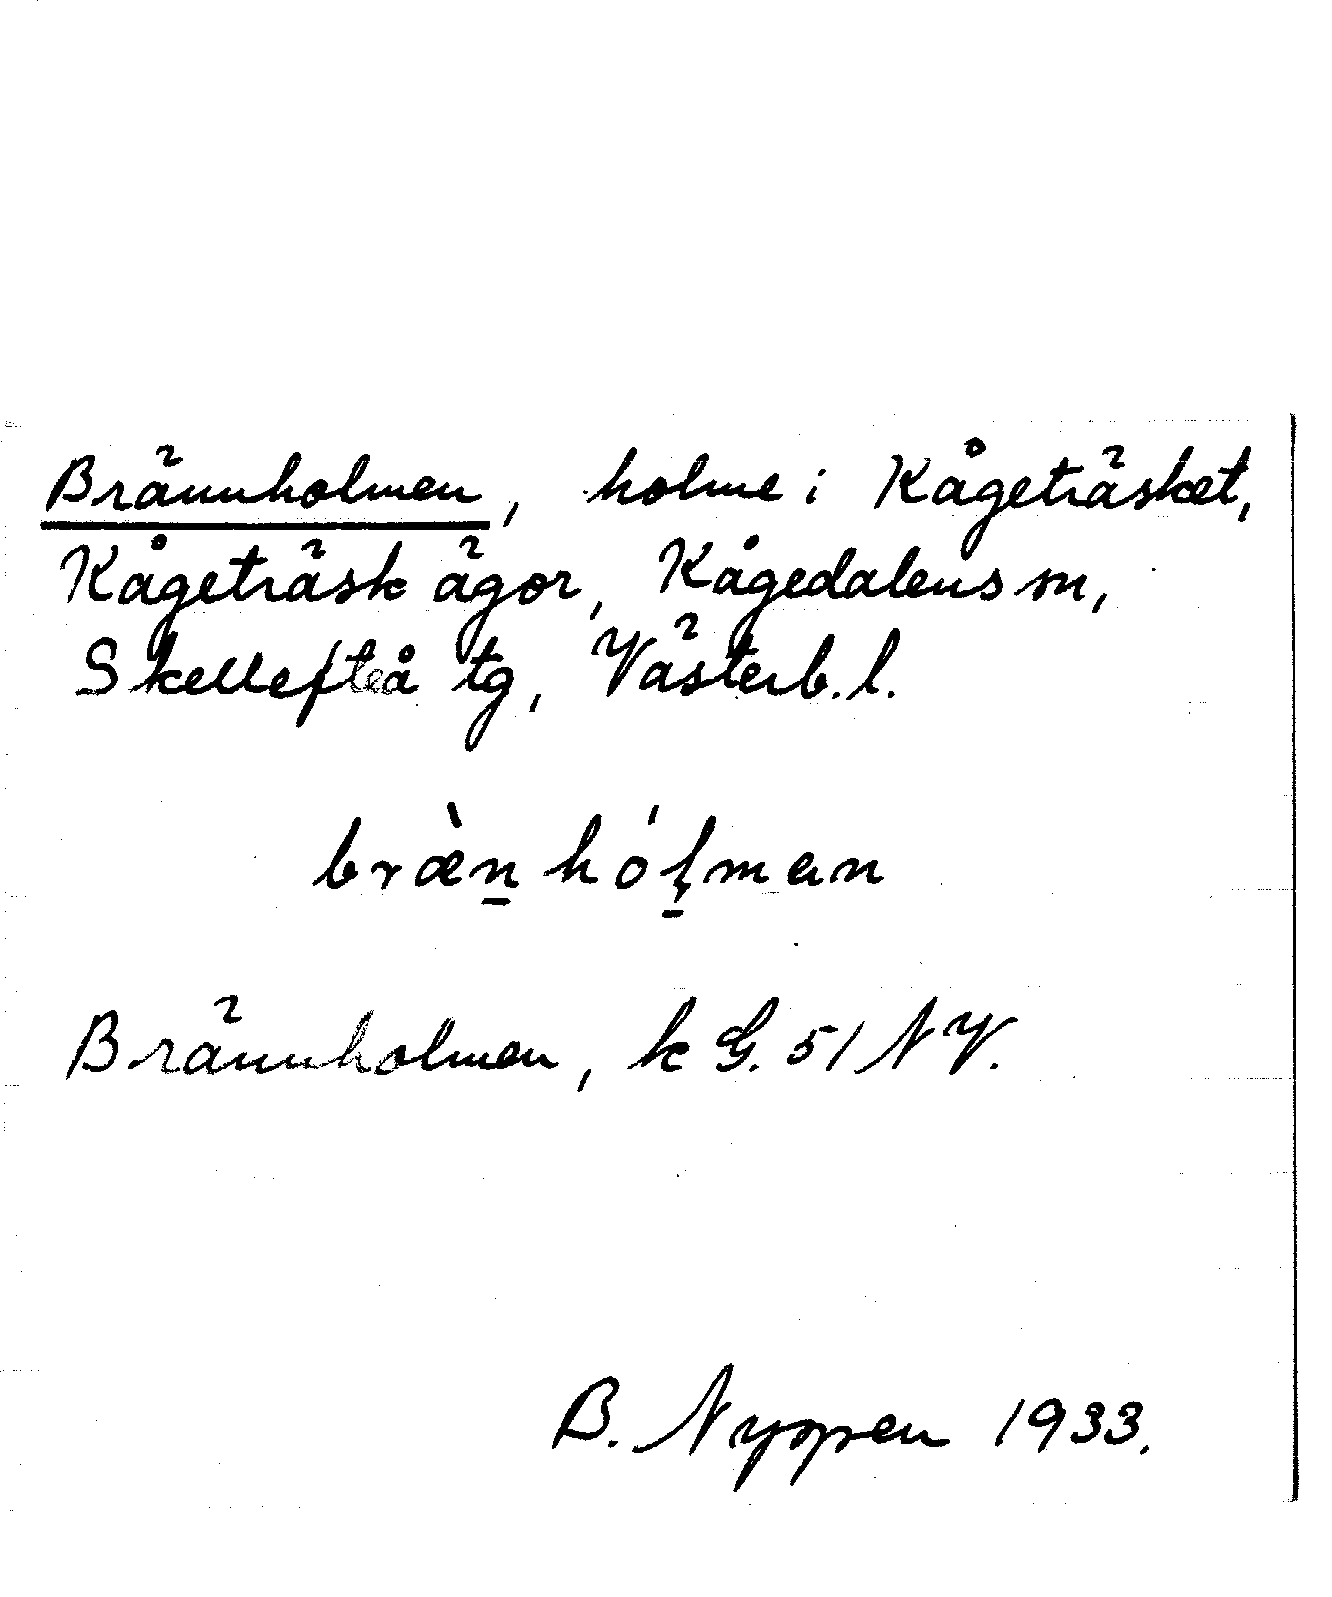 Brännholmen, holme i Kågeträsket,
Kågeträsk ägor, Kågedalens sn,
Skellefteå tg, Västerb. l.
bræ̀n̠hól̠man
Brännholmen, k G. 51 NV.
B. Nyppen 1933.